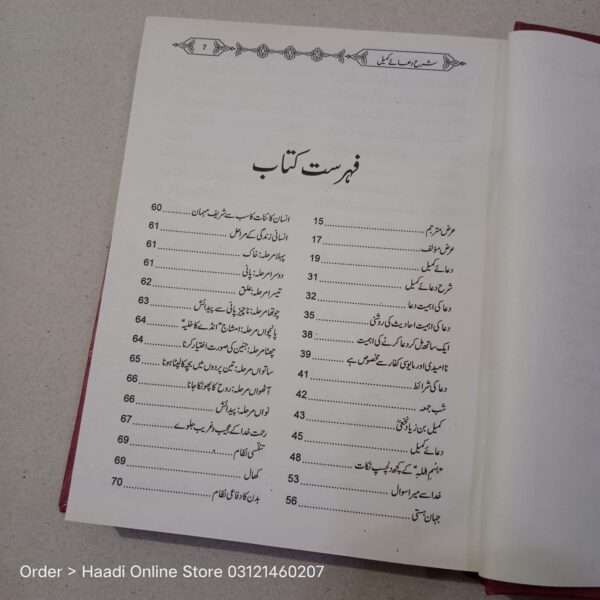 شرح دعائے کمیل
7
فہرست کتاب
عرض مترجم ........ 15
عرض مؤلف ........ 17
دعائے کمیل ........ 19
شرح دعائے کمیل ........ 31
دعا کی اہمیت دعا ........ 32
دعا کی اہمیت احادیث کی روشنی ........ 35
ایک ساتھ مل کر دعا کرنے کی اہمیت ........ 38
ناامیدی اور مایوسی کفار سے مخصوص ہے ........ 39
دعا کی شرائط ........ 41
شب جمعہ ........ 42
کمیل بن زیاد نخعیؒ ........ 43
دعائے کمیل ........ 45
"بسم اللہ" کے کچھ دلچسپ نکات ........ 48
خدا سے میرا سوال ........ 53
جہان ہستی ........ 56
انسان کائنات کا سب سے شریف مہمان ........ 60
انسانی زندگی کے مراحل ........ 61
پہلا مرحلہ: خاک ........ 61
دوسرا مرحلہ: پانی ........ 61
تیسرا مرحلہ: علق ........ 62
چوتھا مرحلہ: ناچیز پانی سے پیدائش ........ 63
پانچواں مرحلہ: امشاج "انڈے کا خلیہ" ........ 64
چھٹا مرحلہ: جنین کی صورت اختیار کرنا ........ 64
ساتواں مرحلہ: تین پردوں میں بچہ کا لپٹا ہونا ........ 65
آٹھواں مرحلہ: روح کا پھونکا جانا ........ 66
نواں مرحلہ: پیدائش ........ 66
رحمت خدا کے عجیب و غریب جلوے ........ 67
تنفسی نظام ........ 69
کھال ........ 69
بدن کا دفاعی نظام ........ 70
Order > Haadi Online Store 03121460207